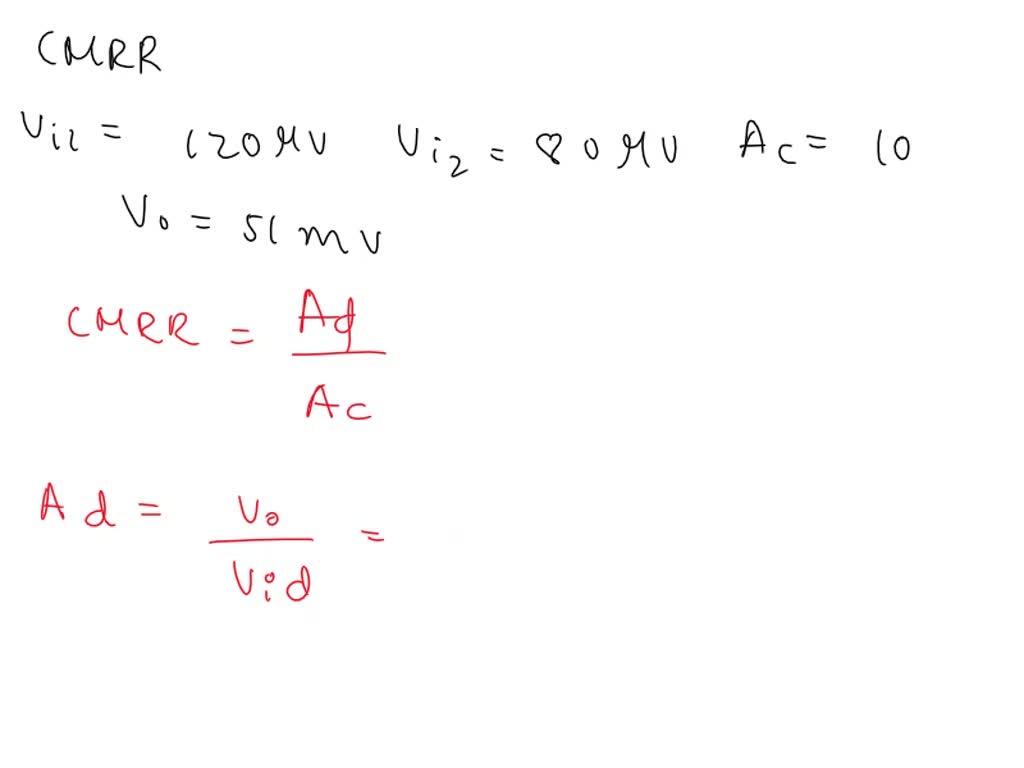 CMRR
Vi1 = 120 μV Vi2 = 80 μV Ac = 10
Vo = 51 mV
CMRR = Ad / Ac
Ad = Vo / Vid =